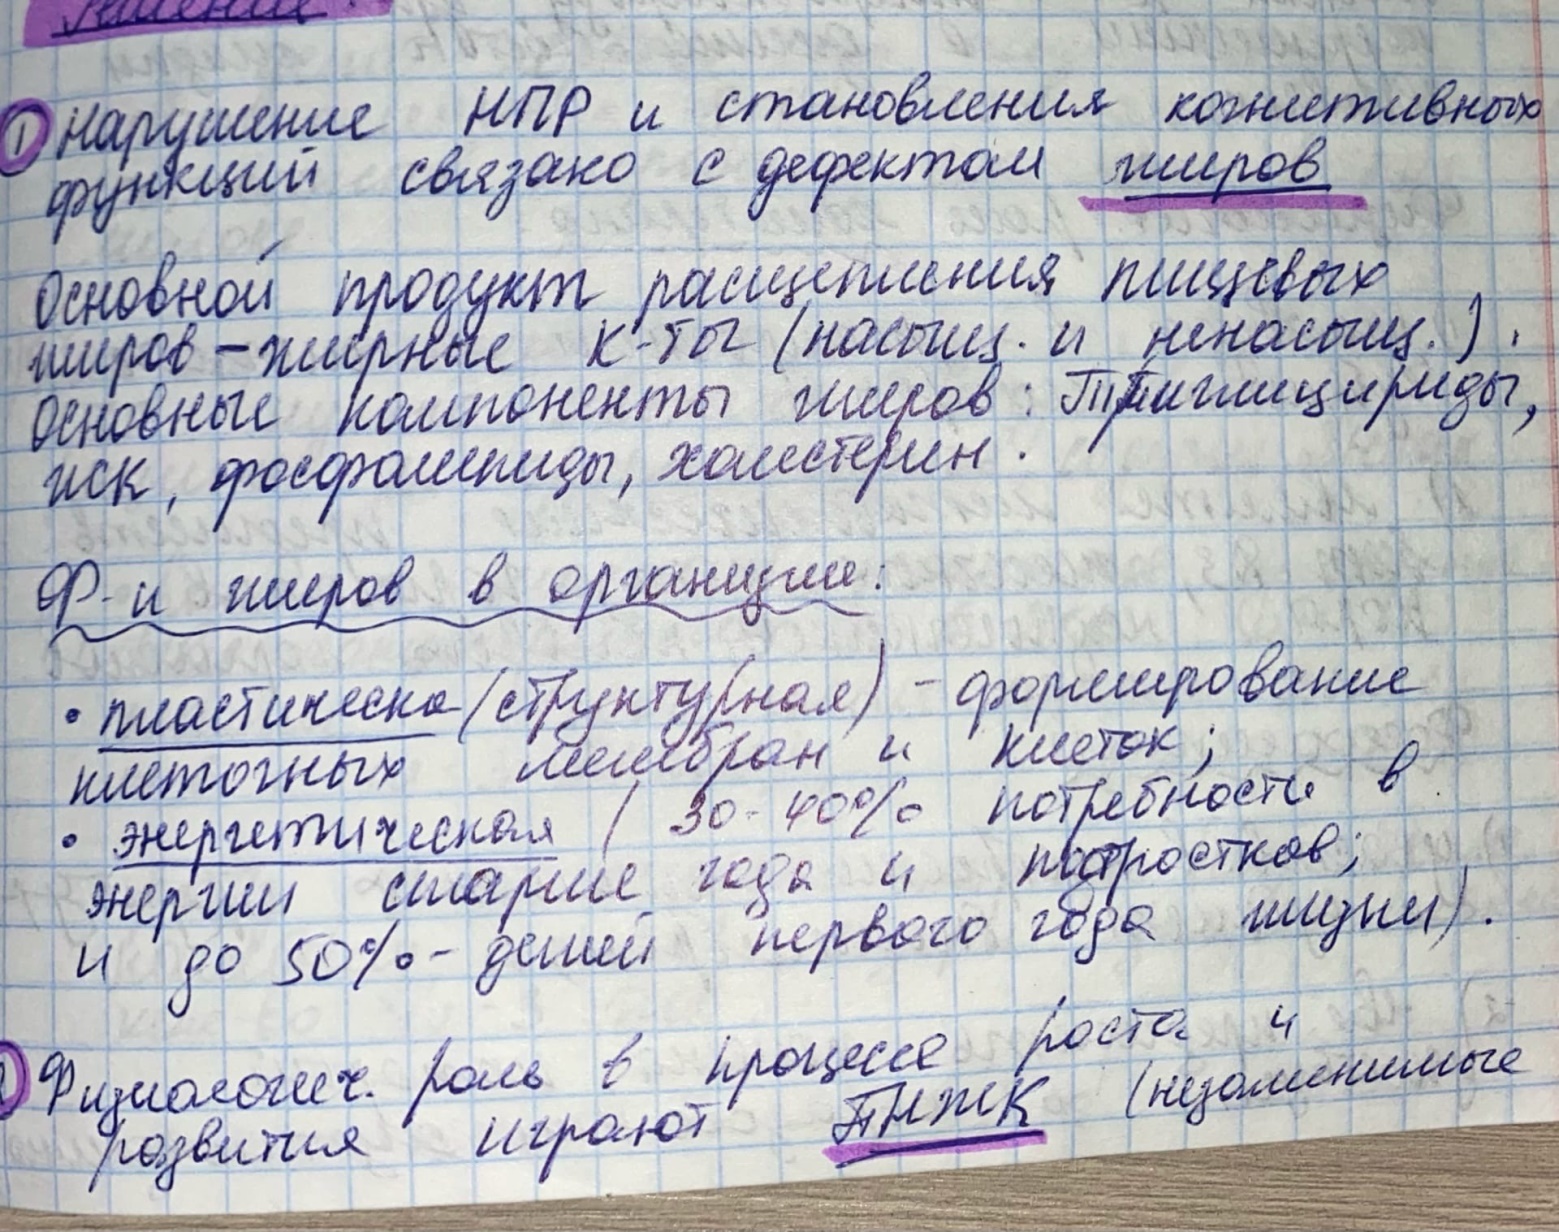 Решение:
① Нарушение НПР и становления когнитивных
функций связано с дефектом жиров
Основной продукт расщепления пищевых
жиров – жирные к-ты (насыщ. и ненасыщ.).
Основные компоненты жиров: Триглицириды,
жск, фосфолипиды, холестерин.
Ф-и жиров в организме:
• пластическа (структурная) – формирование
клеточных мембран и клеток;
• энергетическая ( 30-40% потребности в
энергии старше года и подростков;
и до 50% – детей первого года жизни).
Физиологич. роль в процессе роста и
развития играют ПНЖК (незаменимые